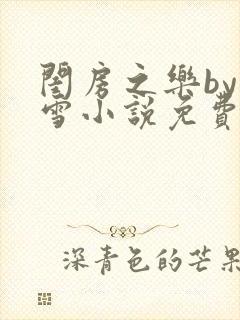 閨房之樂by
雪小說免費
深青色的芒果